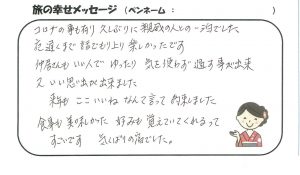 旅の幸せメッセージ（ペンネーム： ）
コロナの事も有り 久しぶりに 親戚の人との一泊でした。
夜遅くまで 話でもり上り 楽しかったです
仲居さんも いい人で ゆったり 気を使わず 過す事が出来
又 いい思い出が出来ました
来年も ここ いいね なんて言って 約束しました
食事も 美味しかった 好みも 覚えていてくれるって
すごいです 気くばりの宿でした。